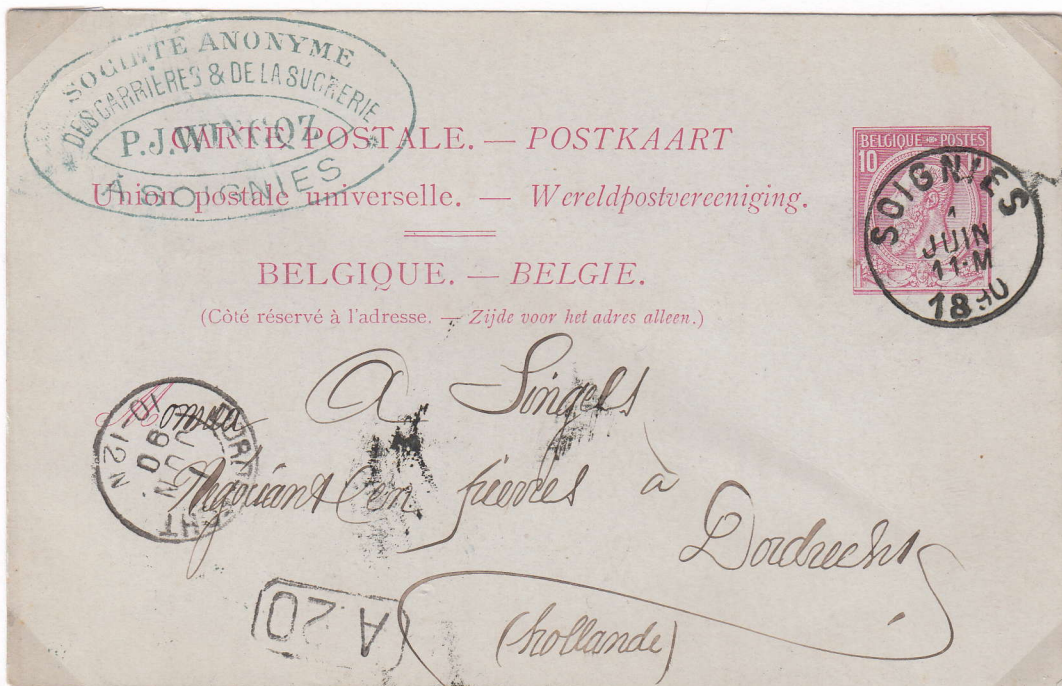 SOCIÉTÉ ANONYME
DES CARRIÈRES & DE LA SUCRERIE
P.J. WINCQZ
A SOIGNIES
CARTE POSTALE. — POSTKAART
Union postale universelle. — Wereldpostvereeniging.
BELGIQUE. — BELGIE.
(Côté réservé à l'adresse. — Zijde voor het adres alleen.)
BELGIQUE POSTES
10
SOIGNIES
1
JUIN
11-M
1890
A Singels
Négociant en pierres à
Dordrecht
(hollande)
DORDRECHT
JUN
90
12N
A 20